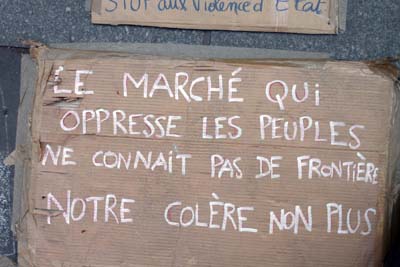 STOP aux Violence d'Etat
LE MARCHÉ QUI
OPPRESSE LES PEUPLES
NE CONNAIT PAS DE FRONTIÈRE
NOTRE COLÈRE NON PLUS